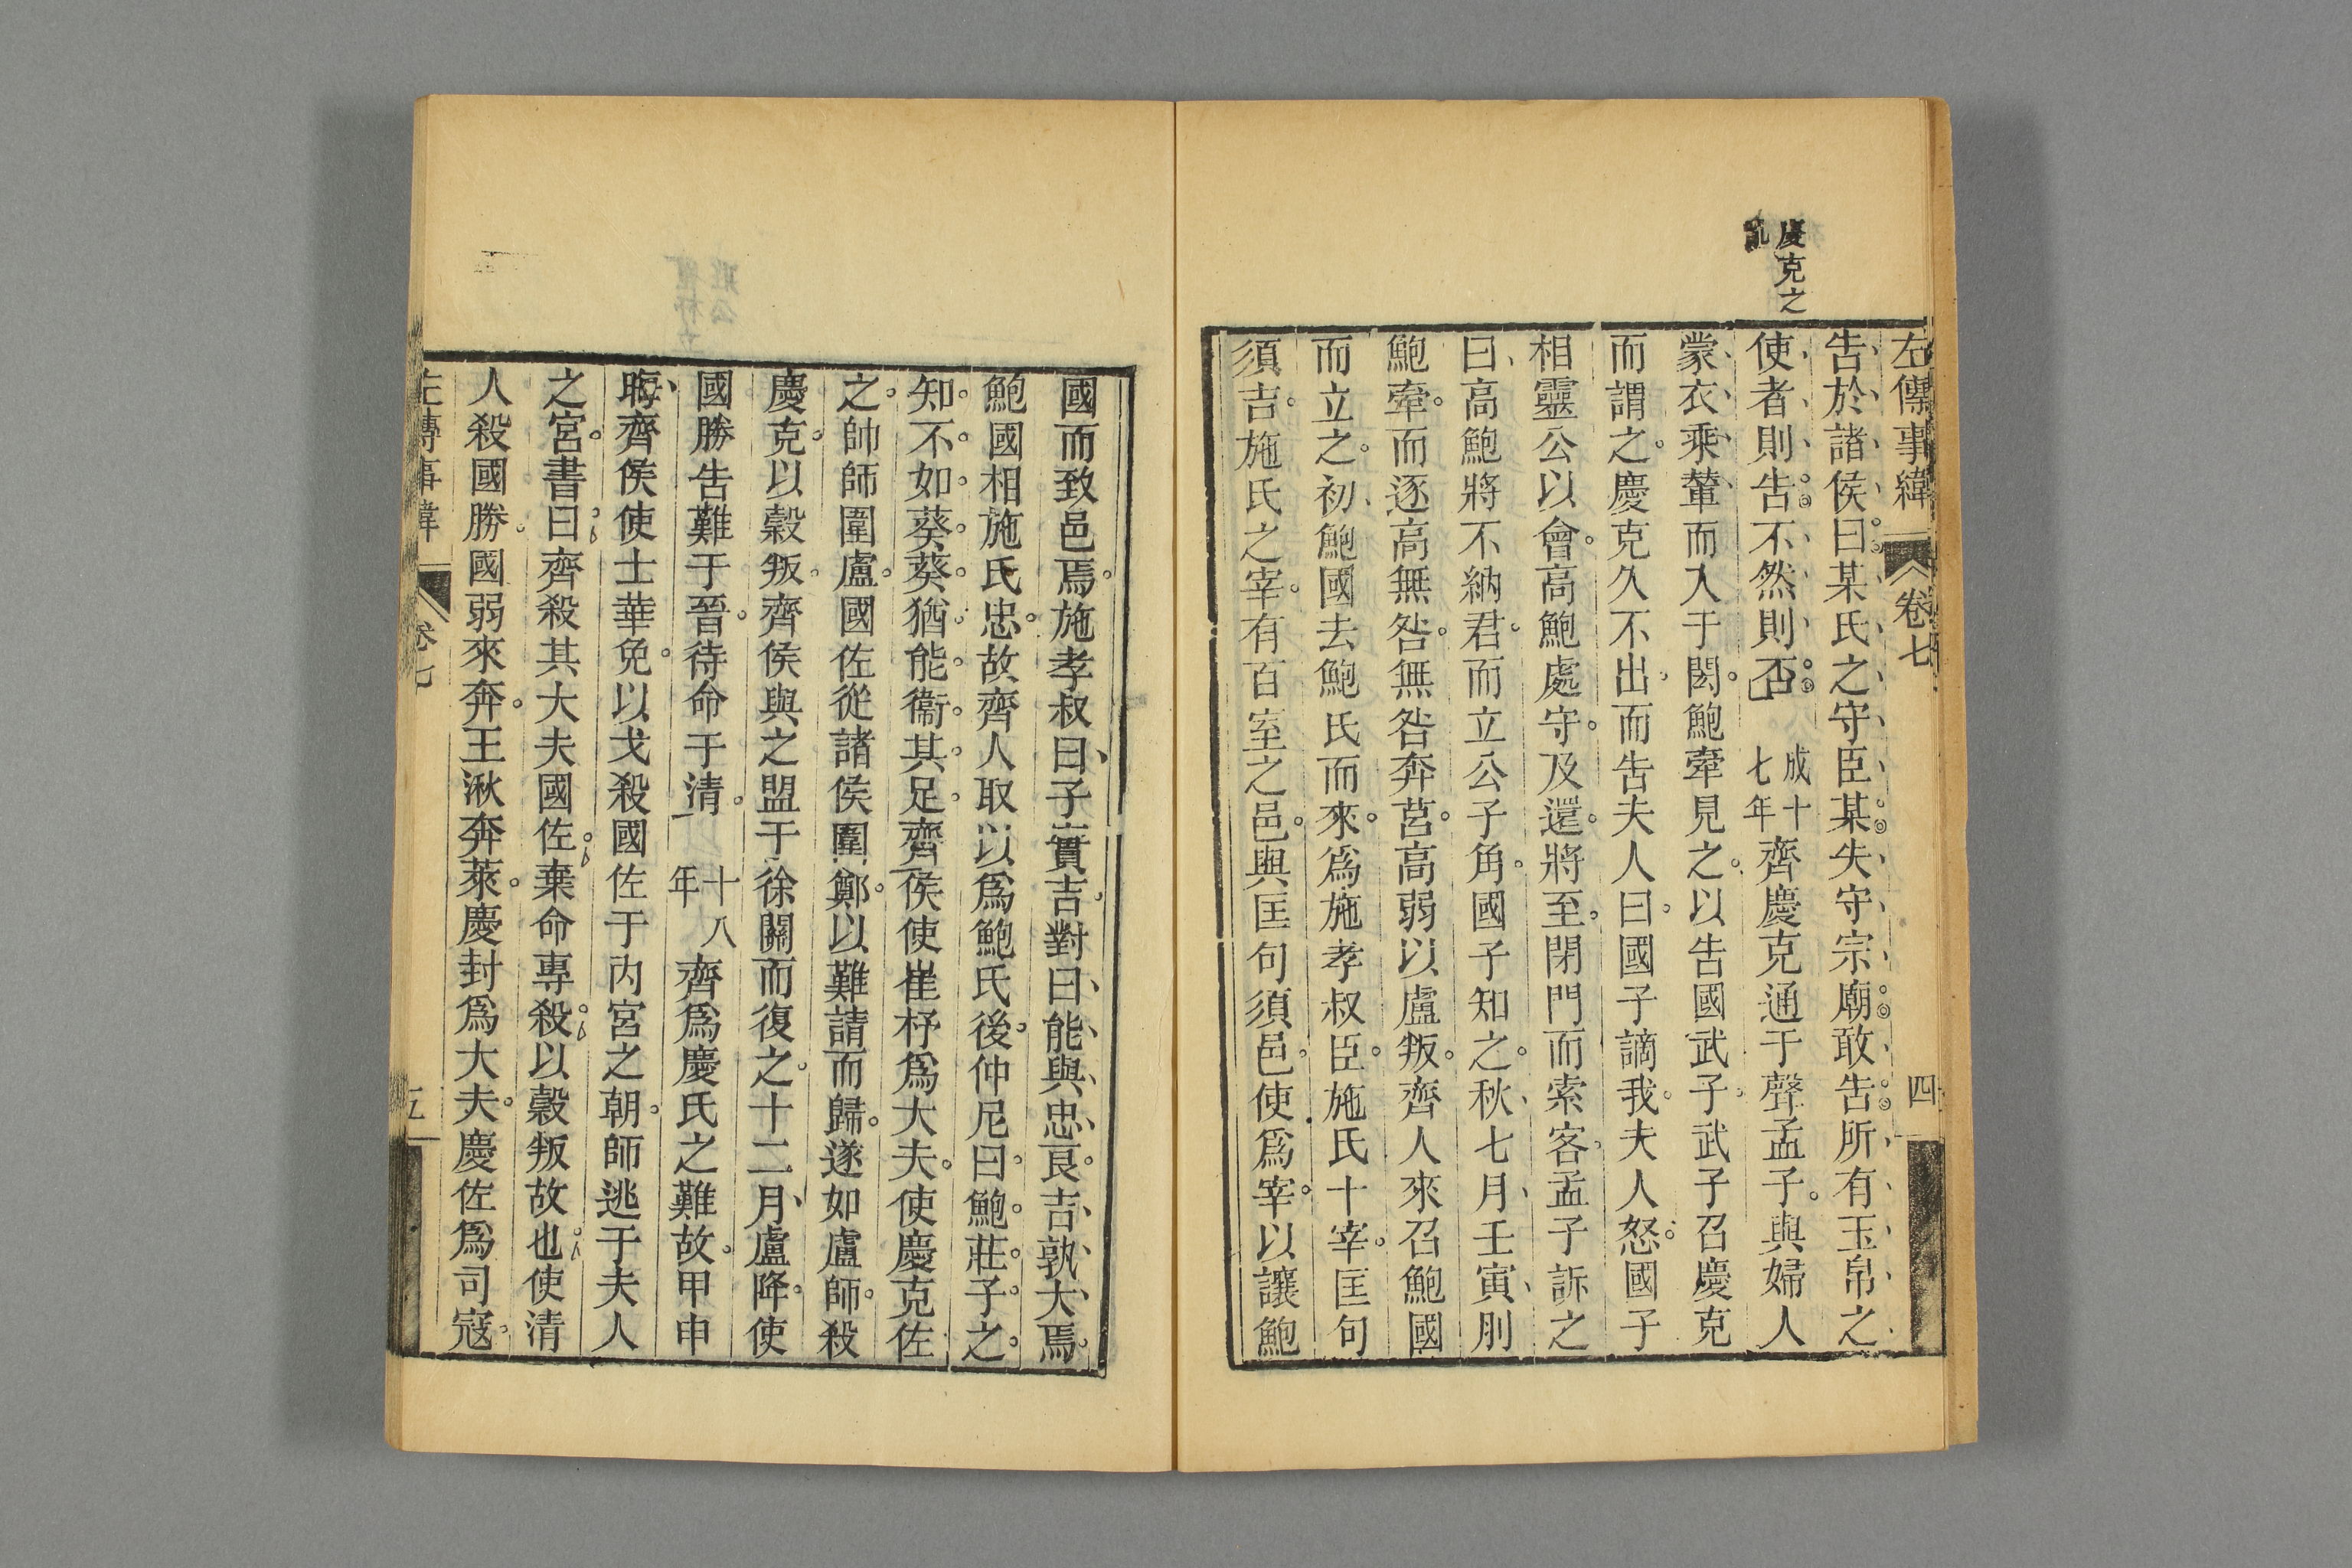 慶克之
亂
左傳事緯 卷七 四
告於諸侯曰某氏之守臣某失守宗廟敢告所有玉帛之
使者則告不然則否 成十七年 齊慶克通于聲孟子與婦人
蒙衣乘輦而入于閎鮑牽見之以告國武子武子召慶克
而謂之慶克久不出而告夫人曰國子謫我夫人怒國子
相靈公以會高鮑處守及還將至閉門而索客孟子訴之
曰高鮑將不納君而立公子角國子知之秋七月壬寅刖
鮑牽而逐高無咎無咎奔莒高弱以盧叛齊人來召鮑國
而立之初鮑國去鮑氏而來為施孝叔臣施氏卜宰匡句
須吉施氏之宰有百室之邑與匡句須邑使為宰以讓鮑
國而致邑焉施孝叔曰子實吉對曰能與忠良吉孰大焉
鮑國相施氏忠故齊人取以為鮑氏後仲尼曰鮑莊子之
知不如葵葵猶能衞其足齊侯使崔杼為大夫使慶克佐
之帥師圍盧國佐從諸侯圍鄭以難請而歸遂如盧師殺
慶克以穀叛齊侯與之盟于徐關而復之十二月盧降使
國勝告難于晉待命于清 十八年 齊為慶氏之難故甲申
晦齊侯使士華免以戈殺國佐于內宮之朝師逃于夫人
之宮書曰齊殺其大夫國佐棄命專殺以穀叛故也使清
人殺國勝國弱來奔王湫奔萊慶封為大夫慶佐為司寇
左傳事緯 卷七 五